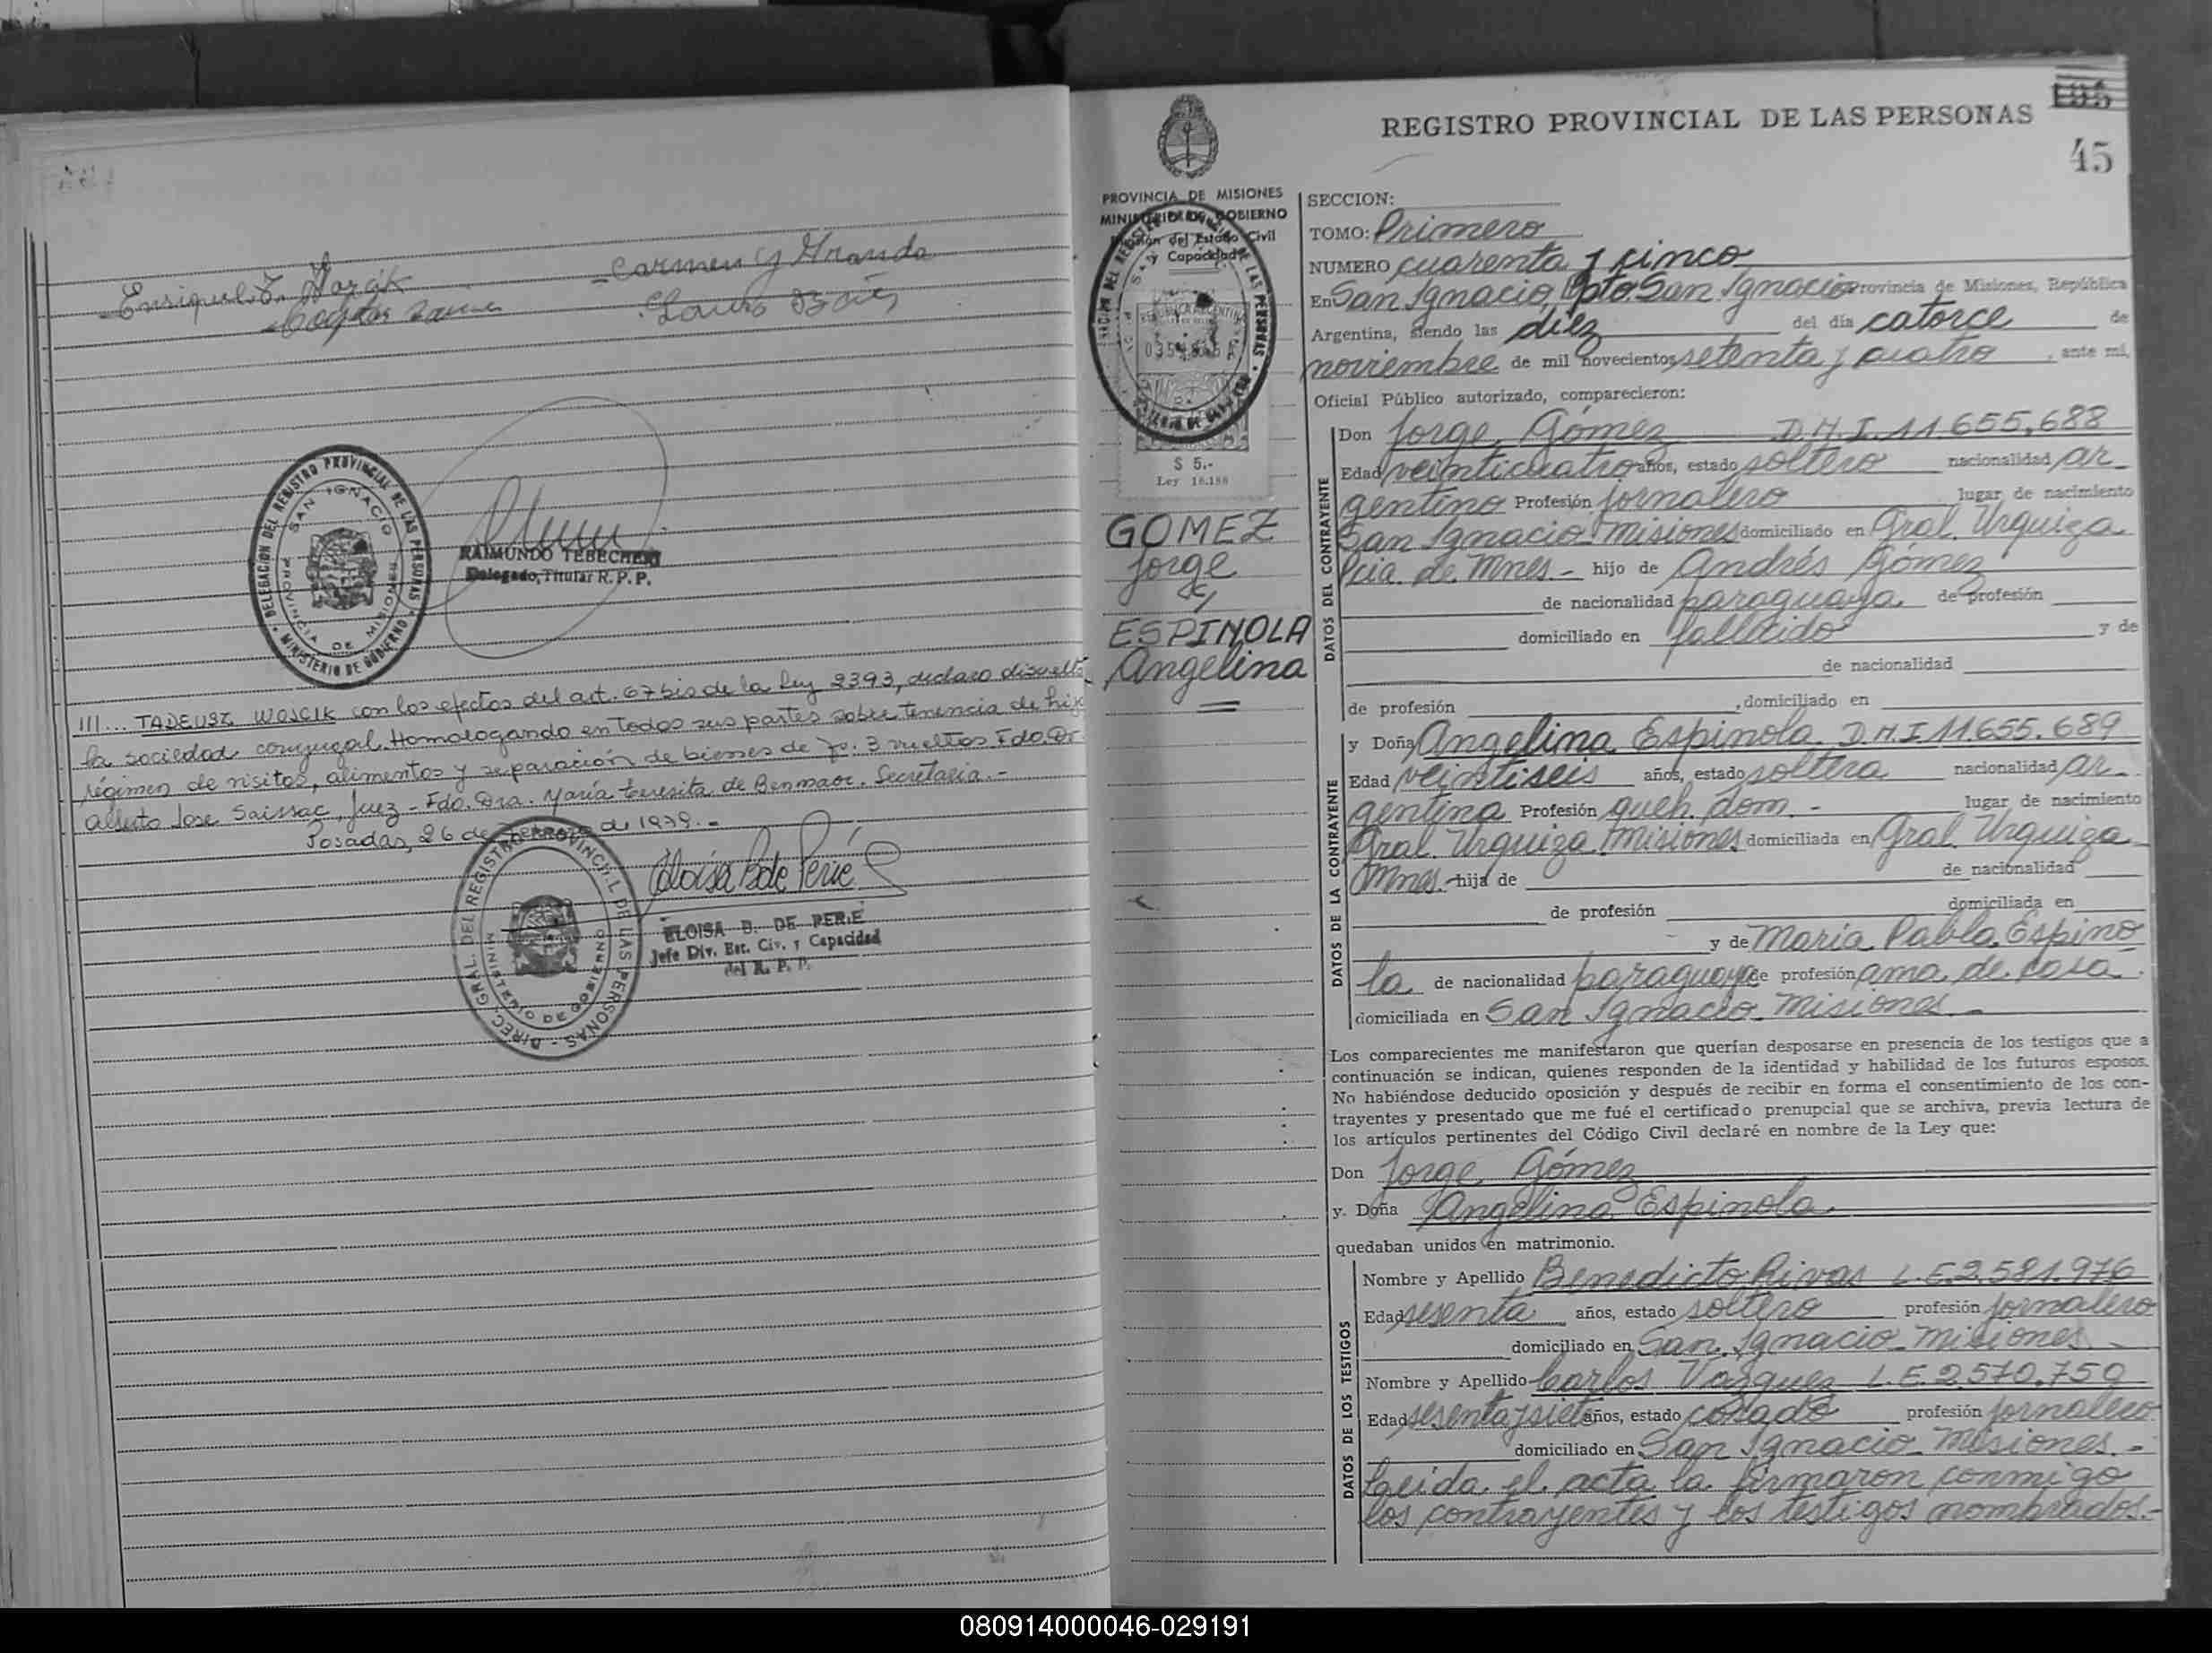 Carmen Y Granda
Enrique
Lauro
DELEGACION DEL REGISTRO PROVINCIAL DE LAS PERSONAS
MINISTERIO DE GOBIERNO
SAN IGNACIO
PROVINCIA DE MISIONES
RAIMUNDO TEBECHERI
Delegado Titular R. P. P.
III... TADEUSZ WOJCIK con los efectos del art. 67 bis de la Ley 2393, declaro disuelta
la sociedad conyugal. Homologando en todos sus partes sobre tenencia de hijo
régimen de visitas, alimentos y separación de bienes de fs. 3 vueltas Fdo. Dr
Alberto Jose Saissac, Juez - Fdo. Dra. María Teresita de Benmaor. Secretaria. -
Posadas, 26 de de 1979. -
DIREC. GRAL. DEL REGISTRO PROVINCIAL DE LAS PERSONAS
MINISTERIO DE GOBIERNO
Eloisa B de Perié
ELOISA B. DE PERIE
Jefe Div. Est. Civ. y Capacidad
del R. P. P.
195
REGISTRO PROVINCIAL DE LAS PERSONAS
45
PROVINCIA DE MISIONES
MINISTERIO DE GOBIERNO
División del Estado Civil
y Capacidad
$ 5.-
Ley 16.188
GOMEZ
Jorge
c/
ESPINOLA
Angelina
SECCION:
TOMO: Primero
NUMERO cuarenta y cinco
En San Ignacio, Dpto. San Ignacio Provincia de Misiones, República
Argentina, siendo las diez del día catorce de
noviembre de mil novecientos setenta y cuatro, ante mí,
Oficial Público autorizado, comparecieron:
DATOS DEL CONTRAYENTE
Don Jorge Gómez D.N.I. 11.655.688
Edad veinticuatro años, estado soltero nacionalidad ar-
gentino Profesión jornalero lugar de nacimiento
San Ignacio Misiones domiciliado en Gral. Urquiza
Pcia. de Mnes - hijo de Andrés Gómez
de nacionalidad paraguaya de profesión
domiciliado en fallecido y de
de nacionalidad
de profesión , domiciliado en
DATOS DE LA CONTRAYENTE
y Doña Angelina Espinola D.N.I 11.655.689
Edad veintiseis años, estado soltera nacionalidad ar-
gentina Profesión queh. dom. - lugar de nacimiento
Gral. Urquiza Misiones domiciliada en Gral. Urquiza
Mnes. - hija de de nacionalidad
de profesión domiciliada en
y de María Pabla Espino
la de nacionalidad paraguaya de profesión ama de casa
domiciliada en San Ignacio Misiones -
Los comparecientes me manifestaron que querían desposarse en presencia de los testigos que a
continuación se indican, quienes responden de la identidad y habilidad de los futuros esposos.
No habiéndose deducido oposición y después de recibir en forma el consentimiento de los con-
trayentes y presentado que me fué el certificado prenupcial que se archiva, previa lectura de
los artículos pertinentes del Código Civil declaré en nombre de la Ley que:
Don Jorge Gómez
y Doña Angelina Espinola
quedaban unidos en matrimonio.
DATOS DE LOS TESTIGOS
Nombre y Apellido Benedicto Rivas L.E. 2.581.976
Edad sesenta años, estado soltero profesión jornalero
domiciliado en San Ignacio Misiones -
Nombre y Apellido Carlos Vazquez L.E. 2.570.750
Edad sesenta y siete años, estado casado profesión jornalero
domiciliado en San Ignacio Misiones. -
Leída el acta la firmaron conmigo
los contrayentes y los testigos nombrados. -
080914000046-029191